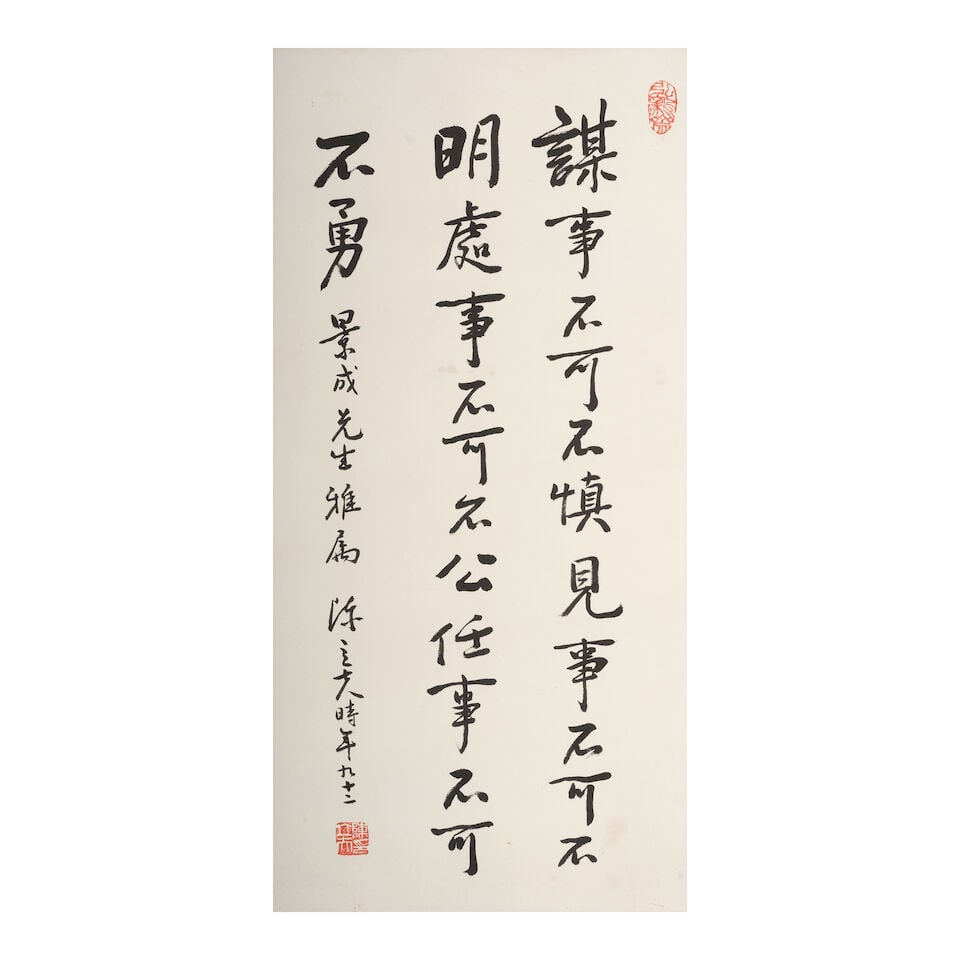 謀事不可不慎見事不可不
明處事不可不公任事不可
不勇 景成先生雅属 陳立夫時年九十二